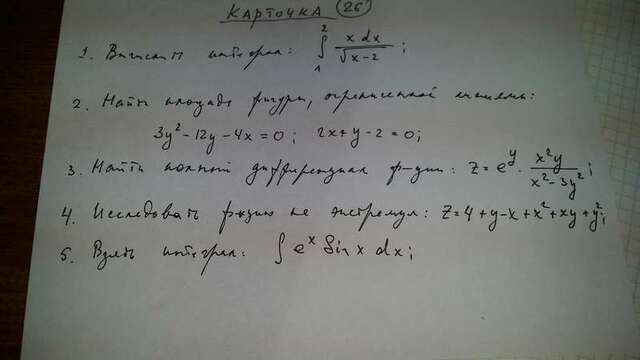 КАРТОЧКА 26
1. Вычислить интеграл: ∫₁² x dx / √(x-2) ;
2. Найти площадь фигуры, ограниченной линиями:
3y² - 12y - 4x = 0; 2x + y - 2 = 0;
3. Найти полный дифференциал ф-ции: z = e^y · x²y / (x² - 3y²) ;
4. Исследовать ф-цию на экстремум: z = 4 + y - x + x² + xy + y²;
5. Взять интеграл: ∫ e^x Sin x dx;